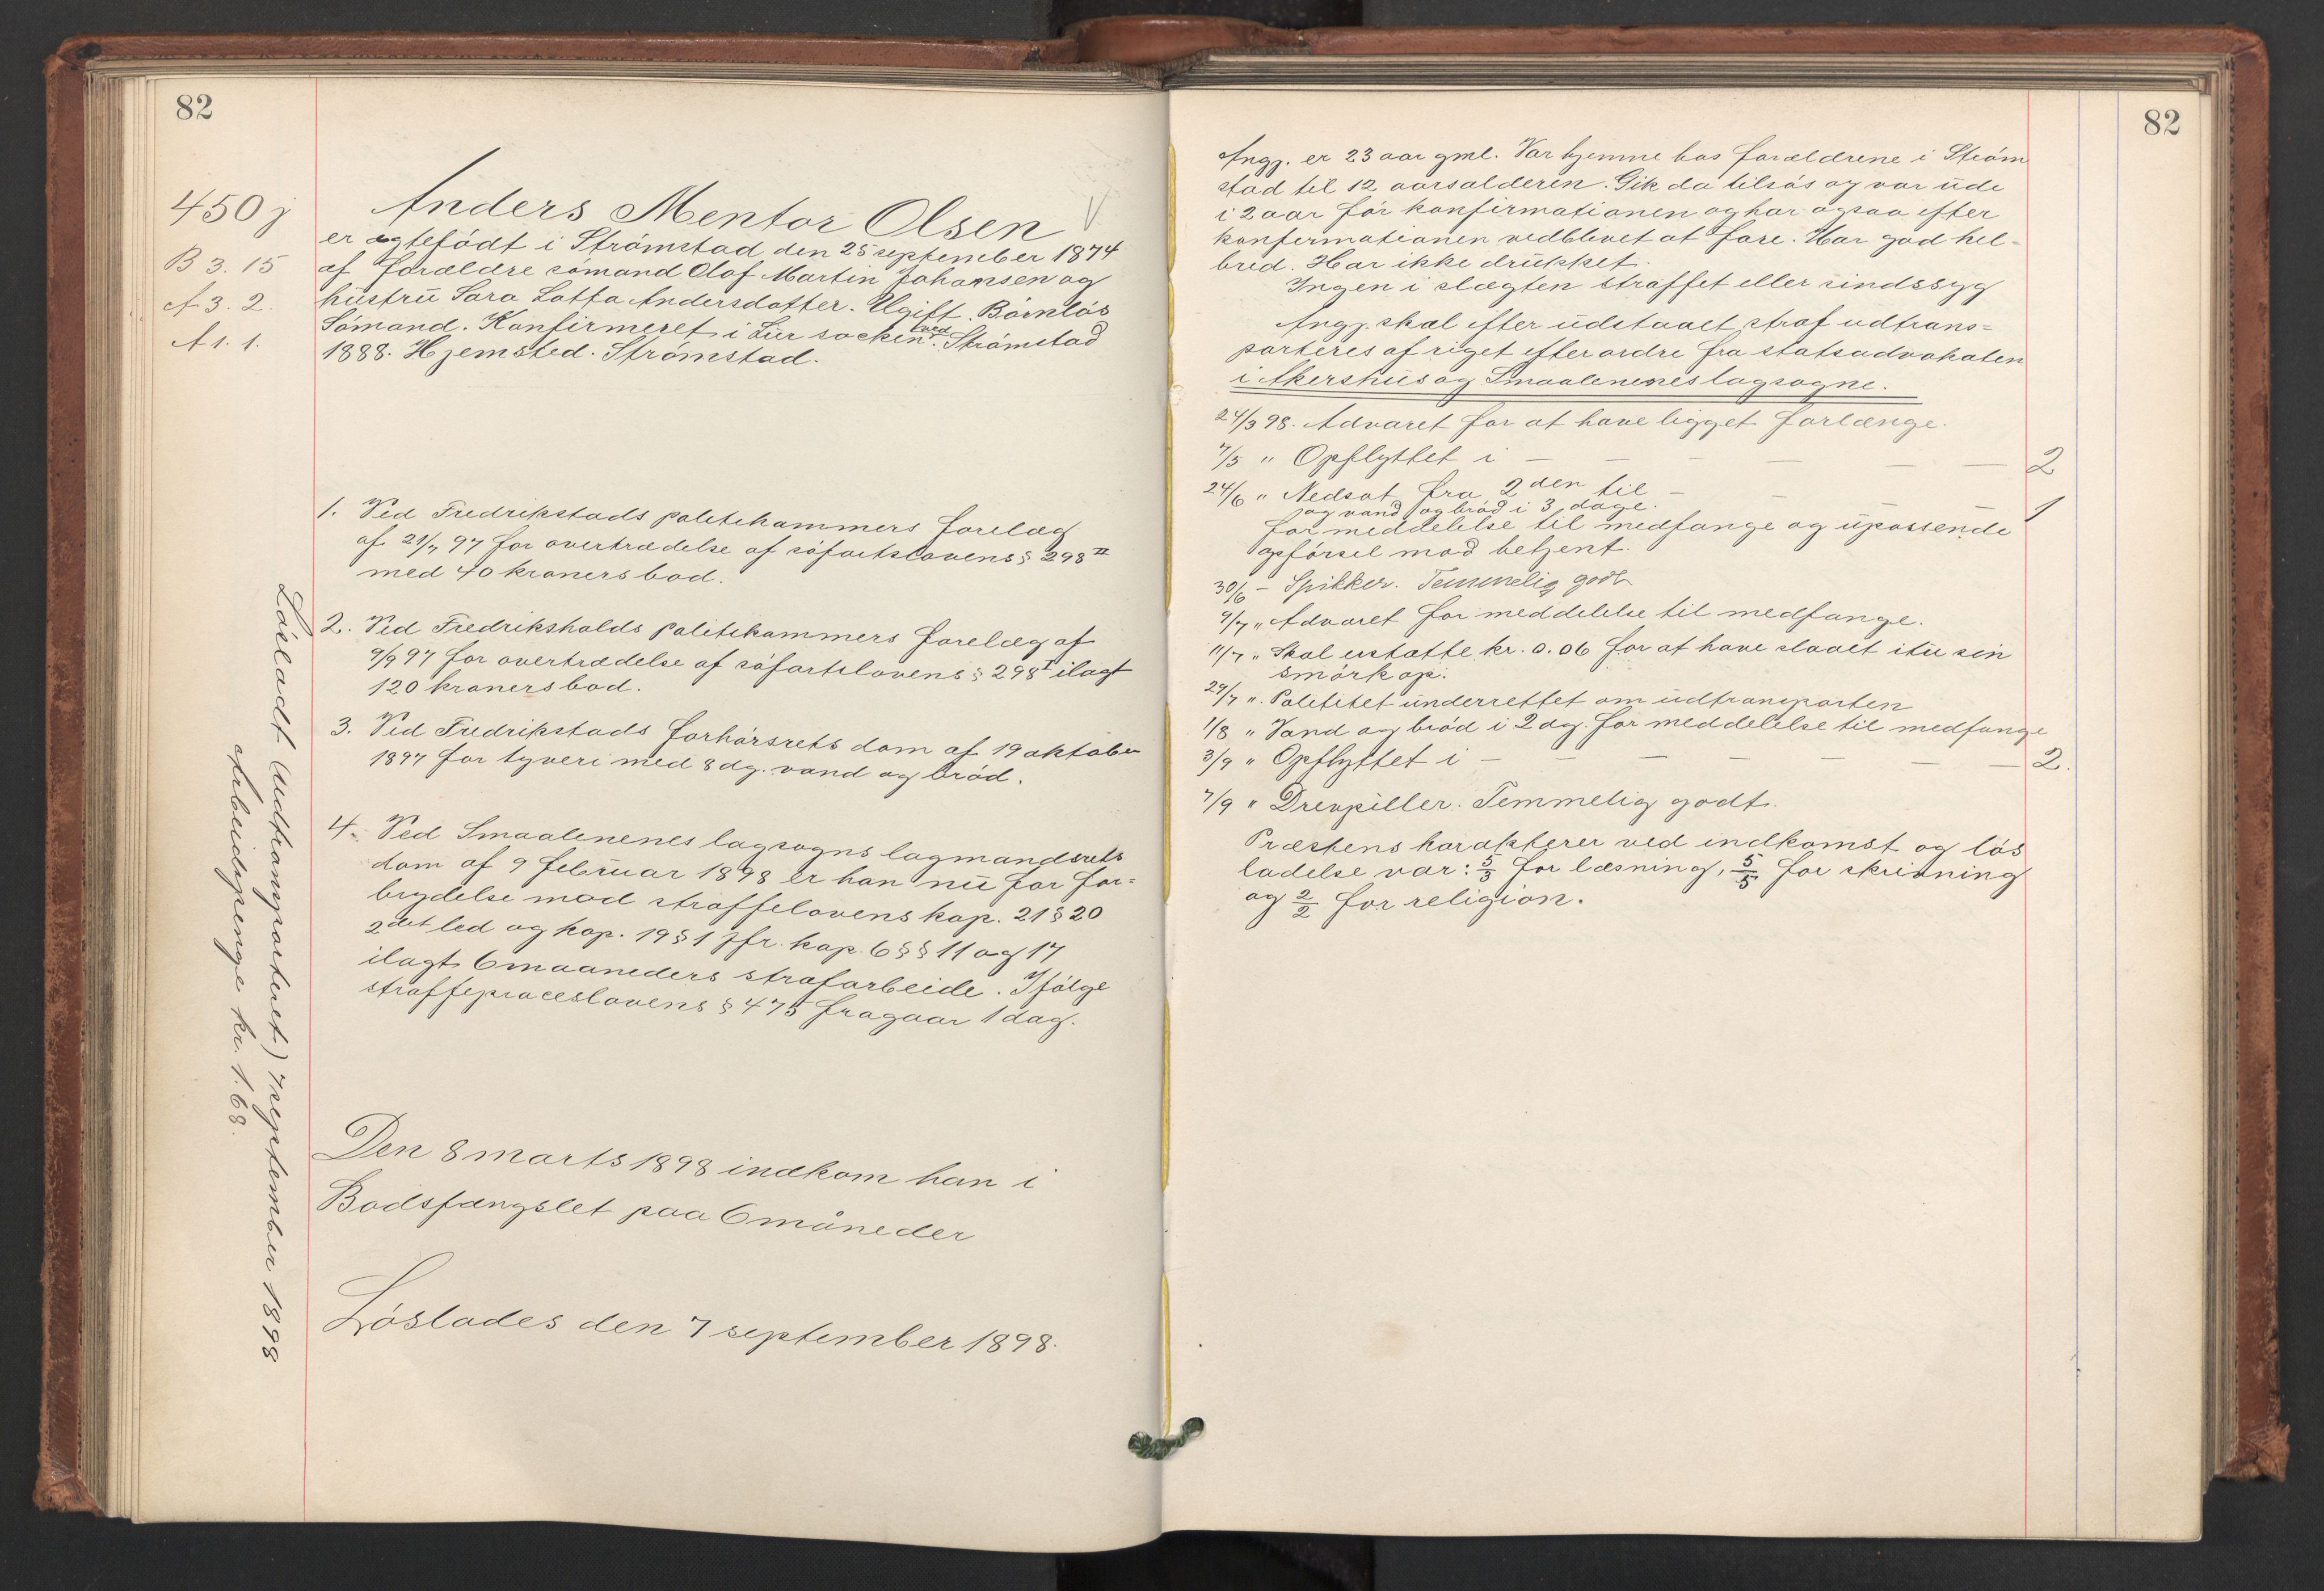 82
450 j
B 3. 15
A 3. 2.
A 1. 1.
Anders Mentor Olsen V
er ægtefödt i Strömstad den 25 september 1874
af forældre sömand Olof Martin Johansen og
hüstrü Sara Lotta Andersdatter. Ugift. Börnlös
Sömand. Konfirmeret i Lür socken ved Strömstad
1888. Hjemsted. Strömstad.
1. Ved Fredrikstads politikammers forelæg
af 21/7 97 for overtrædelse af söfartslovens § 298 II
med 40 kroners bod.
2. Ved Fredrikshalds politikammers forelæg af
9/9 97 for overtrædelse af söfartslovens § 298 I ilagt
120 kroners bod.
3. Ved Fredrikstads forhörsrets dom af 19 oktober
1897 for tyveri med 8 dg. vand og bröd.
4. Ved Smaalenenes lagsogns lagmandsrets
dom af 9 februar 1898 er han nü for for=
brydelse mod straffelovens kap. 21 § 20
2det led og kap. 19 § 1 jfr. kap. 6 §§ 11 og 17
ilagt 6 maaneders strafarbeide. Ifölge
straffeproceslovens § 475 fragaar 1 dag.
Den 8 marts 1898 indkom han i
Bodsfængslet paa 6 måneder
Löslades den 7 september 1898.
Lösladt (Udtransporteret) 7 september 1898
Arbeidspenge kr. 1.68.
82
Angj. er 23 aar gml. Var hjemme hos forældrene i Ström
stad til 12 aarsalderen. Gik da tilsös og var üde
i 2 aar för konfirmationen og har ogsaa efter
konfirmationen vedblevet at fare. Har god hel-
bred. Har ikke drükket.
Ingen i slægten straffet eller sindssyg
Angj. skal efter üdstaaet straf udtrans=
porteres af riget efter ordre fra statsadvokaten
i Akershüs og Smaalenenes lagsogne.
24/3 98. Advaret for at have ligget forlænge.
7/5 " Opflyttet i — — — — — — 2
24/6 " Nedsat fra 2den til — — — — 1
og vand og bröd i 3 dage.
for meddelelse til medfange og üpassende
opförsel mod betjent.
30/6 - Spikker. Temmelig godt
9/7 " Advaret for meddelelse til medfange.
11/7 " Skal erstatte kr. 0.06 for at have slaaet itü sin
smörkop.
29/7 ". Politiet ünderrettet om üdtransporten
1/8 " Vand og bröd i 2 dg. for meddelelse til medfange
3/9 " Opflyttet i — — — — — — 2.
7/9 " Drevpiller. Temmelig godt.
Præstens karakterer ved indkomst og lös
ladelse var: 5/5 for læsning, 5/5 for skrivning
og 2/2 for religion.